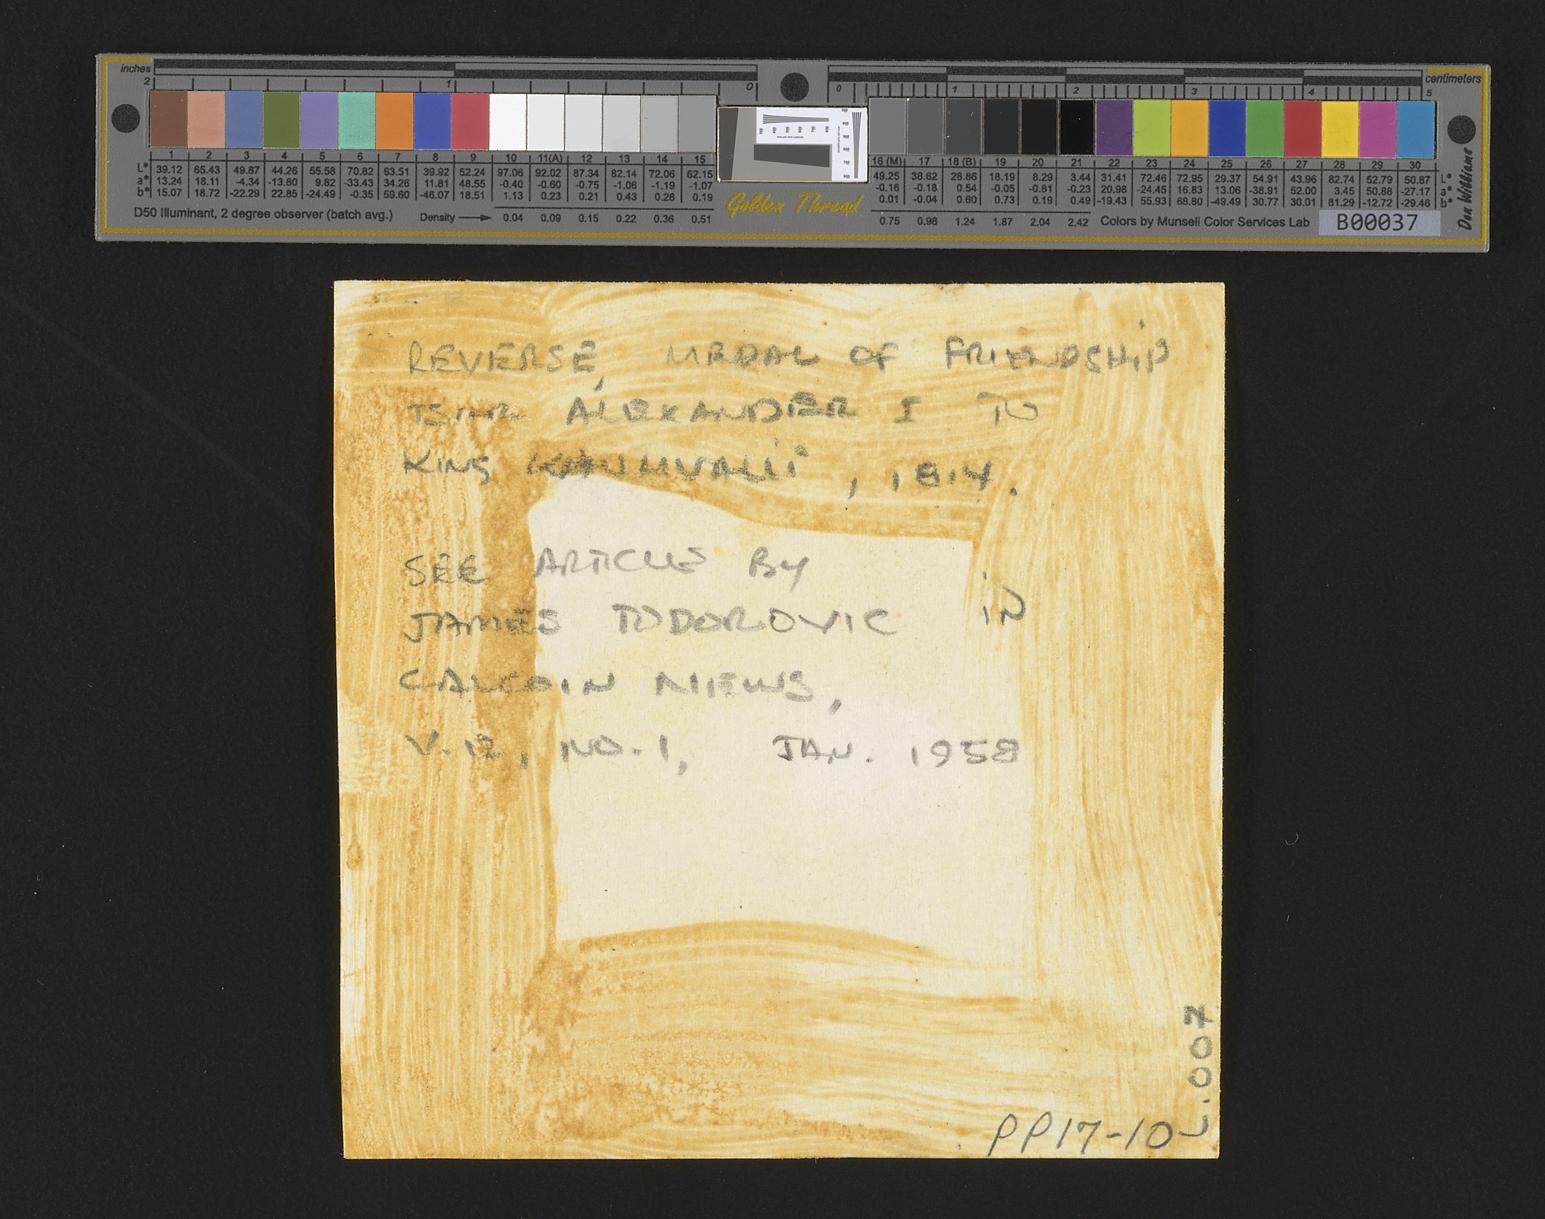 inches
centimeters
2 1 0 0 1 2 3 4 5
1 2 3 4 5 6 7 8 9 10 11(A) 12 13 14 15 16 (M) 17 18 (B) 19 20 21 22 23 24 25 26 27 28 29 30
L* 39.12 65.43 49.87 44.26 55.58 70.82 63.51 39.92 52.24 97.06 92.02 87.34 82.14 72.06 62.15 49.25 38.62 28.86 18.19 8.29 3.44 31.41 72.46 72.95 29.37 54.91 43.96 82.74 52.79 50.87 L*
a* 13.24 18.11 -4.34 -13.80 9.82 -33.43 34.26 11.81 48.55 -0.40 -0.60 -0.75 -1.06 -1.19 -1.07 -0.16 -0.18 0.54 -0.05 -0.81 -0.23 20.98 -24.45 16.83 13.06 -38.91 52.00 3.45 50.88 -27.17 a*
b* 15.07 18.72 -22.29 22.85 -24.49 -0.35 59.60 -46.07 18.51 1.13 0.23 0.21 0.43 0.28 0.19 0.01 -0.04 0.60 0.73 0.19 0.49 -19.43 55.93 68.80 -49.49 30.77 30.01 81.29 -12.72 -29.46 b*
D50 Illuminant, 2 degree observer (batch avg.) Density 0.04 0.09 0.15 0.22 0.36 0.51 Golden Thread 0.75 0.98 1.24 1.87 2.04 2.42 Colors by Munsell Color Services Lab B00037
Don Williams
REVERSE, MEDAL OF FRIENDSHIP
TSAR ALEXANDER I TO
KING KAUMUALII, 1814.
SEE ARTICLE BY
JAMES TODOROVIC IN
CALCOIN NEWS,
V.12, NO.1, JAN. 1958
PP17-10-
L.007